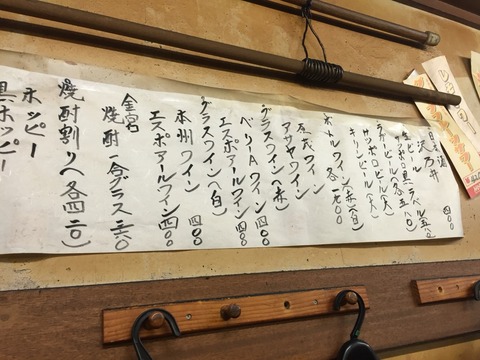 日本酒
沢乃井 四〇〇
生ビール
サッポロ黒ラベル 五八〇
ラガービール(大)
サッポロビール(大)
キリンビール(大)
ボトルワイン(赤)(白)
各一九〇〇
アサヤワイン
グラスワイン(赤)
ベリーAワイン 四〇〇
エスポアールワイン 四〇〇
グラスワイン(白)
本州ワイン 四〇〇
エスポアールワイン 四〇〇
金宮
焼酎一合グラス 三六〇
焼酎割り(各四二〇)
ホッピー
黒ホッピー